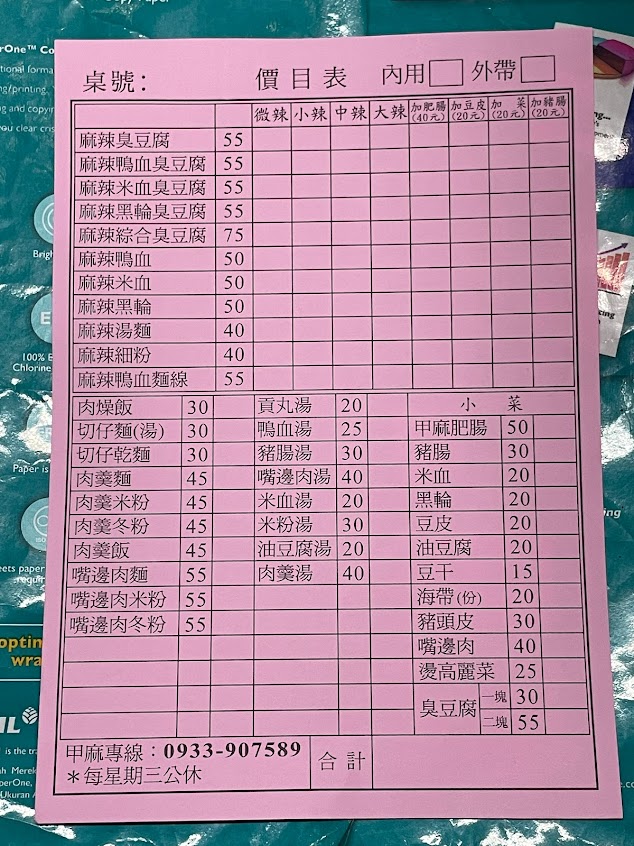 桌號： 價目表 內用 外帶
微辣 小辣 中辣 大辣 加肥腸(40元) 加豆皮(20元) 加菜(20元) 加豬腸(20元)
麻辣臭豆腐 55
麻辣鴨血臭豆腐 55
麻辣米血臭豆腐 55
麻辣黑輪臭豆腐 55
麻辣綜合臭豆腐 75
麻辣鴨血 50
麻辣米血 50
麻辣黑輪 50
麻辣湯麵 40
麻辣細粉 40
麻辣鴨血麵線 55
肉燥飯 30 貢丸湯 20 小菜
切仔麵(湯) 30 鴨血湯 25 甲麻肥腸 50
切仔乾麵 30 豬腸湯 30 豬腸 30
肉羹麵 45 嘴邊肉湯 40 米血 20
肉羹米粉 45 米血湯 20 黑輪 20
肉羹冬粉 45 米粉湯 30 豆皮 20
肉羹飯 45 油豆腐湯 20 油豆腐 20
嘴邊肉麵 55 肉羹湯 40 豆干 15
嘴邊肉米粉 55 海帶(份) 20
嘴邊肉冬粉 55 豬頭皮 30
嘴邊肉 40
燙高麗菜 25
臭豆腐 一塊 30
二塊 55
甲麻專線：0933-907589 合計
＊每星期三公休